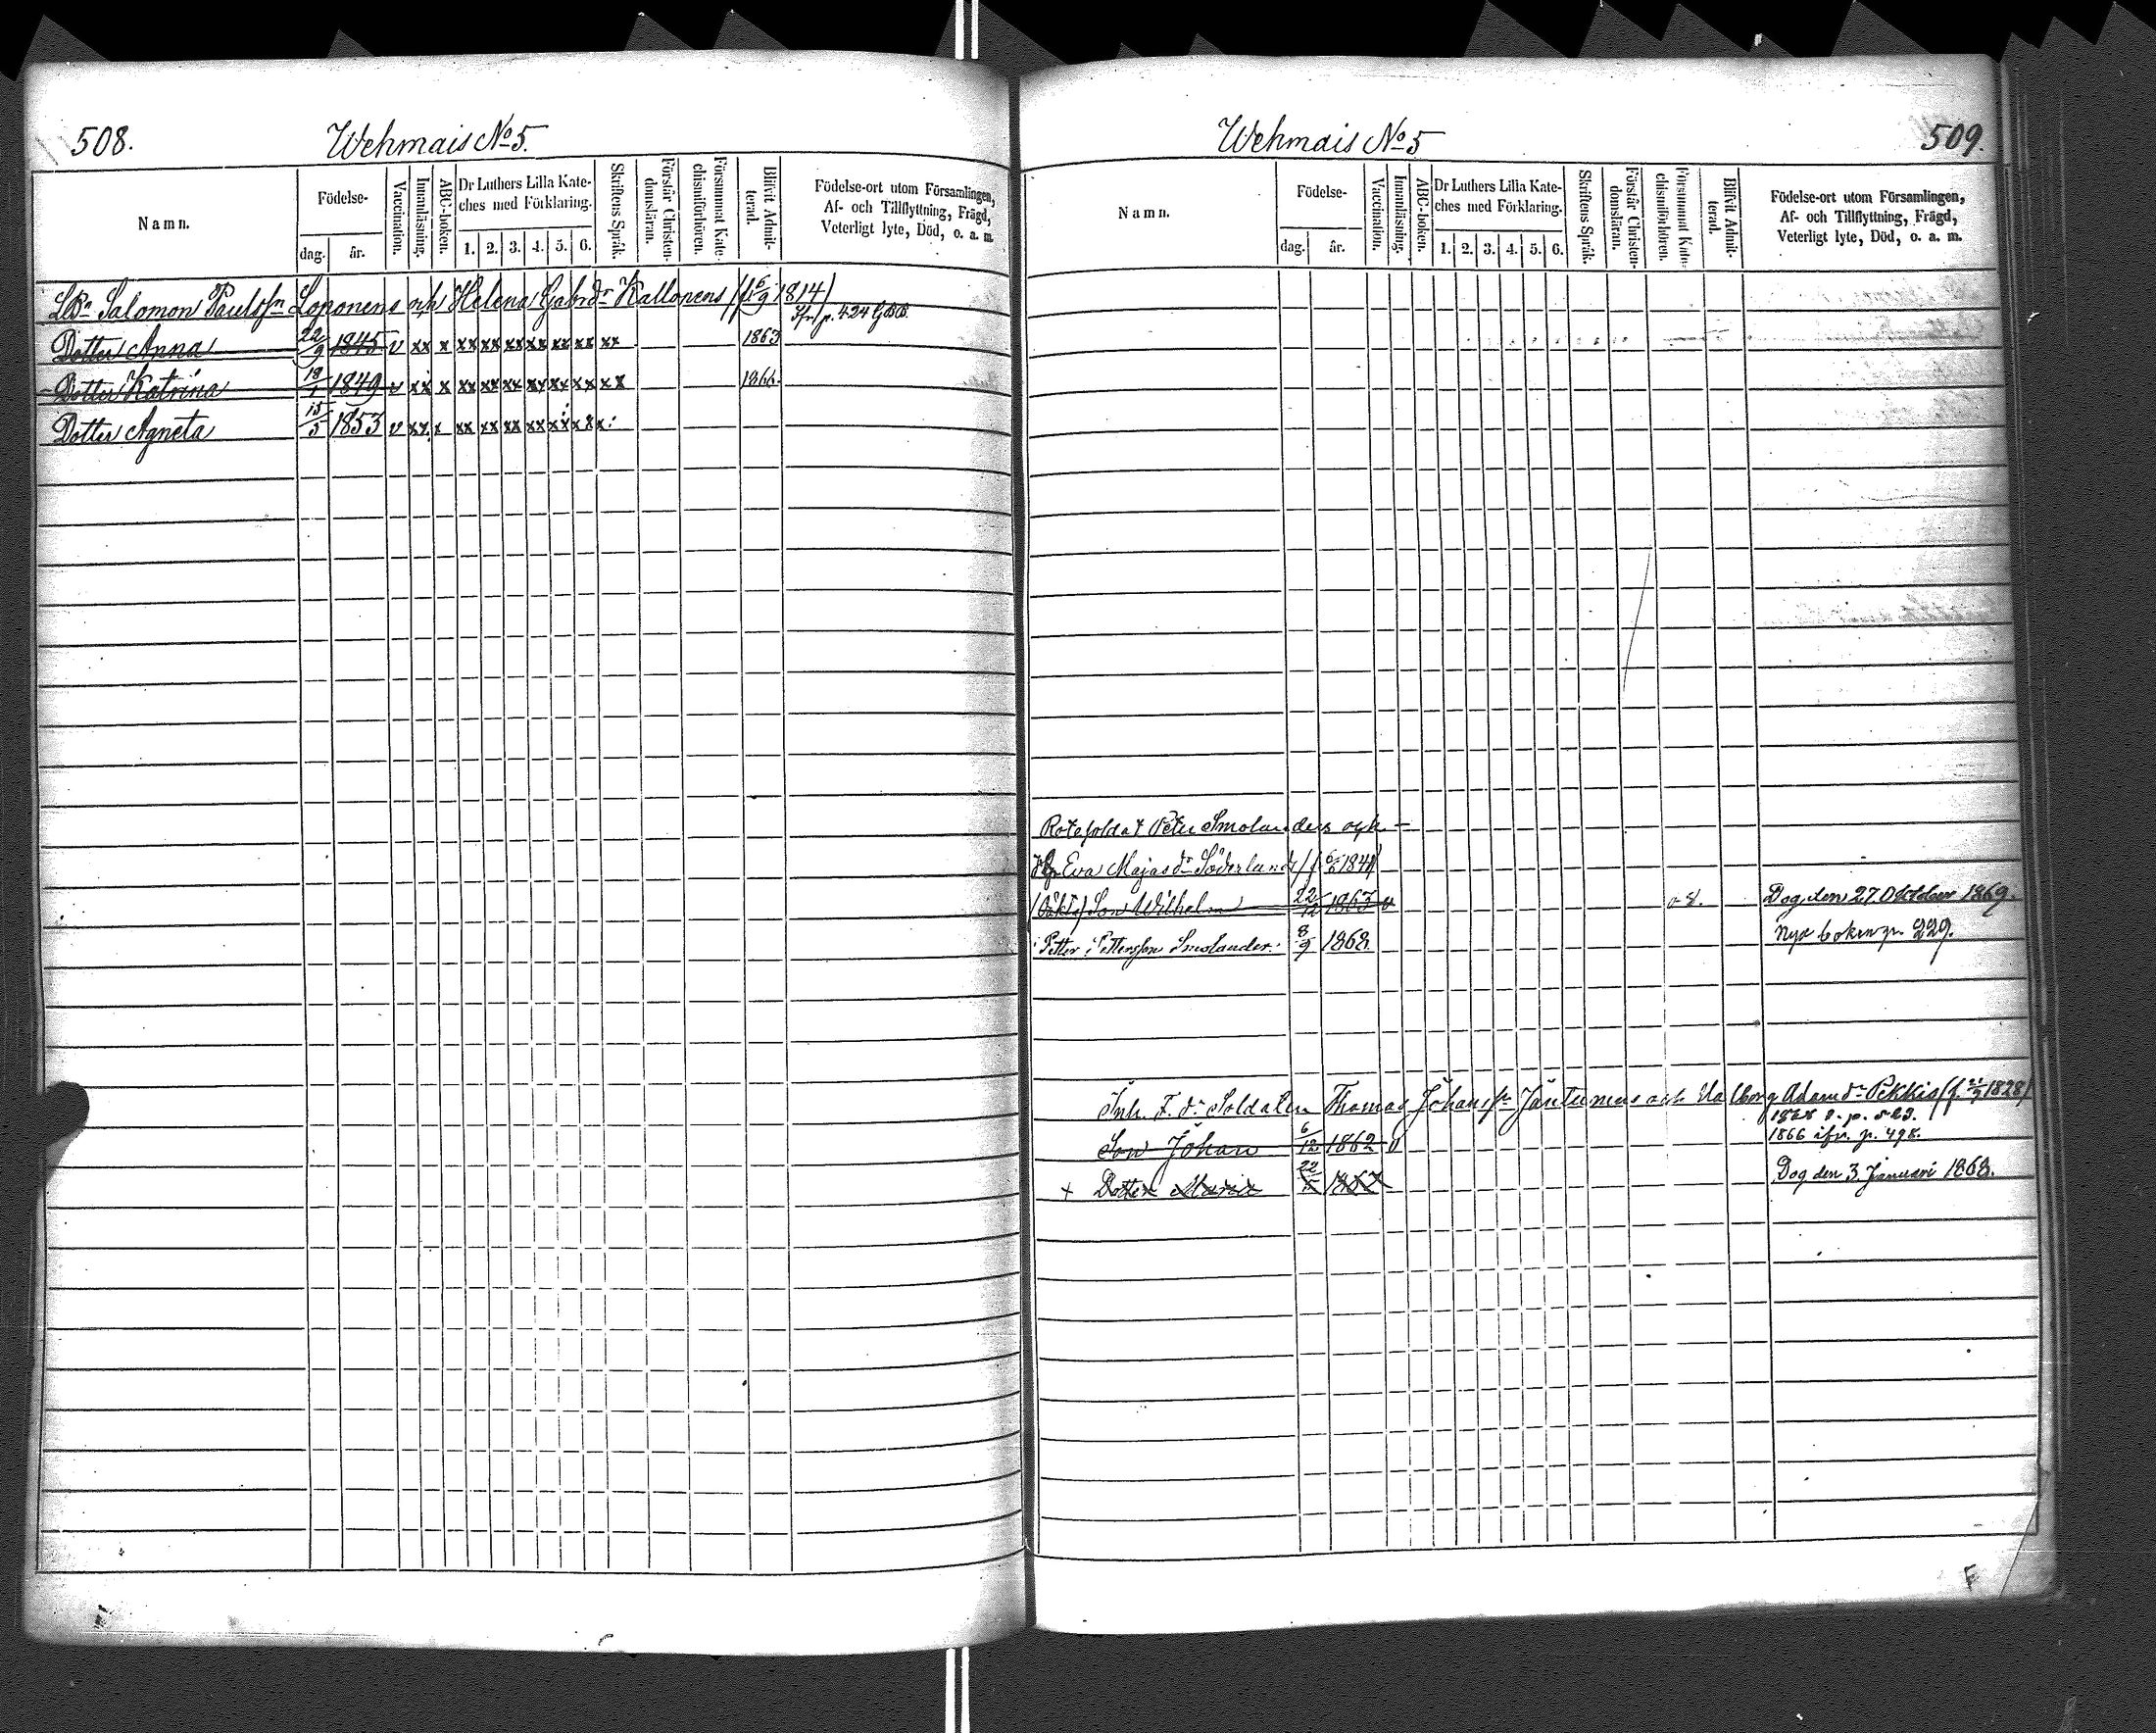 508.
Wehmais No 5.
Namn.
Födelse-
dag.
år.
Vaccination.
Innanläsning.
ABC-boken.
Dr Luthers Lilla Kate-
ches med Förklaring.
1. 2. 3. 4. 5. 6.
Skriftens Språk.
Förstår Christen-
domsläran.
Försummat Kate-
chismiförhören.
Blifvit Admit-
terad.
Födelse-ort utom Församlingen,
Af- och Tillflyttning, Frägd,
Veterligt lyte, Död, o. a. m.
Salomon Paulss:n Loponens och Helena Gabr.dr Kallonens (f. 1814)
p. 424
Dotter Anna 22/9 1845 v xx x xx xx xx xx xx xx xx 1863
Dotter Katrina 18/1 1849 v xx x xx xx xx xx xx xx xx 1866
Dotter Agneta 15/5 1853 v xx x xx xx xx xx xx xx x
Wehmais No 5
509.
Namn.
Födelse-
dag.
år.
Vaccination.
Innanläsning.
ABC-boken.
Dr Luthers Lilla Kate-
ches med Förklaring.
1. 2. 3. 4. 5. 6.
Skriftens Språk.
Förstår Christen-
domsläran.
Försummat Kate-
chismiförhören.
Blifvit Admit-
terad.
Födelse-ort utom Församlingen,
Af- och Tillflyttning, Frägd,
Veterligt lyte, Död, o. a. m.
Rotesoldat Peter Smolanders och
Eva Majasdr Söderlunds (f. 1841)
Son Wilhelm 22/12 1863 v Dog den 27 Oktober 1869.
Petter Pettersson Smolander. 8/9 1868 Nya boken p. 229.
Inh. F. d. Soldaten Thomas Johanss:n Jäntunens och Walborg Adamdr Pekkis (f. 1828)
1866 p. 498.
Son Johan 6/12 1862 v
+ Dotter Maria 22 1867 Dog den 3 Januari 1868.
F